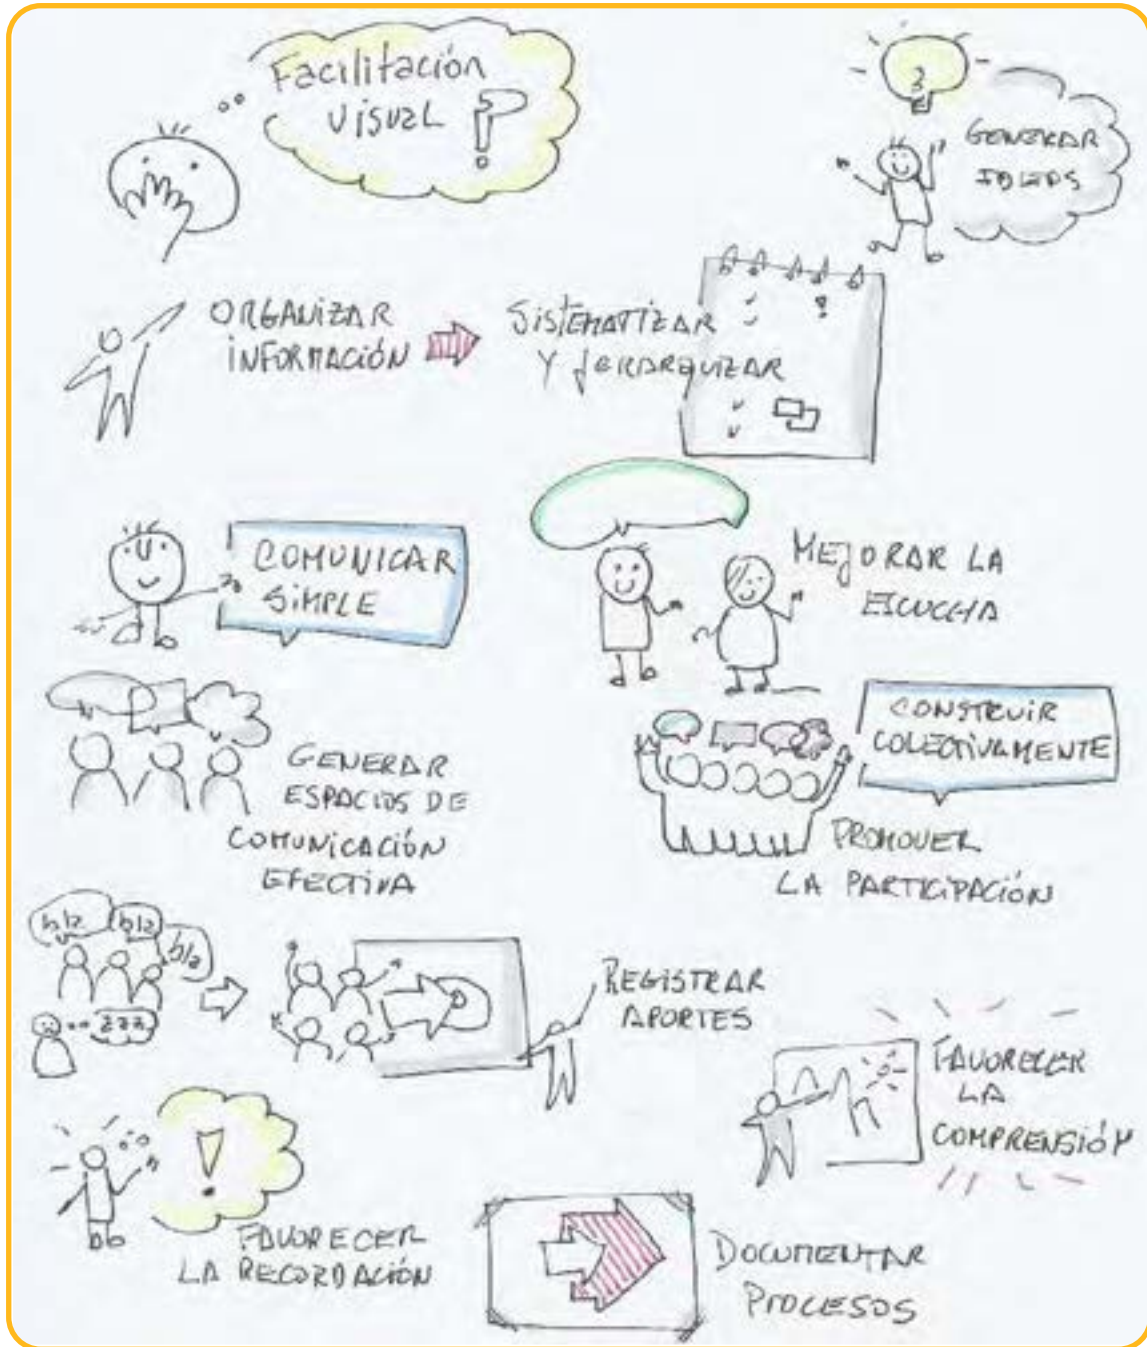 Facilitación
visual ?
GENERAR
IDEAS
ORGANIZAR
INFORMACIÓN
SISTEMATIZAR
Y JERARQUIZAR
COMUNICAR
SIMPLE
MEJORAR LA
ESCUCHA
GENERAR
ESPACIOS DE
COMUNICACIÓN
EFECTIVA
CONSTRUIR
COLECTIVAMENTE
PROMOVER
LA PARTICIPACIÓN
bla
bla
bla
zzz
REGISTRAR
APORTES
FAVORECER
LA
COMPRENSIÓN
!
FAVORECER
LA RECORDACIÓN
DOCUMENTAR
PROCESOS